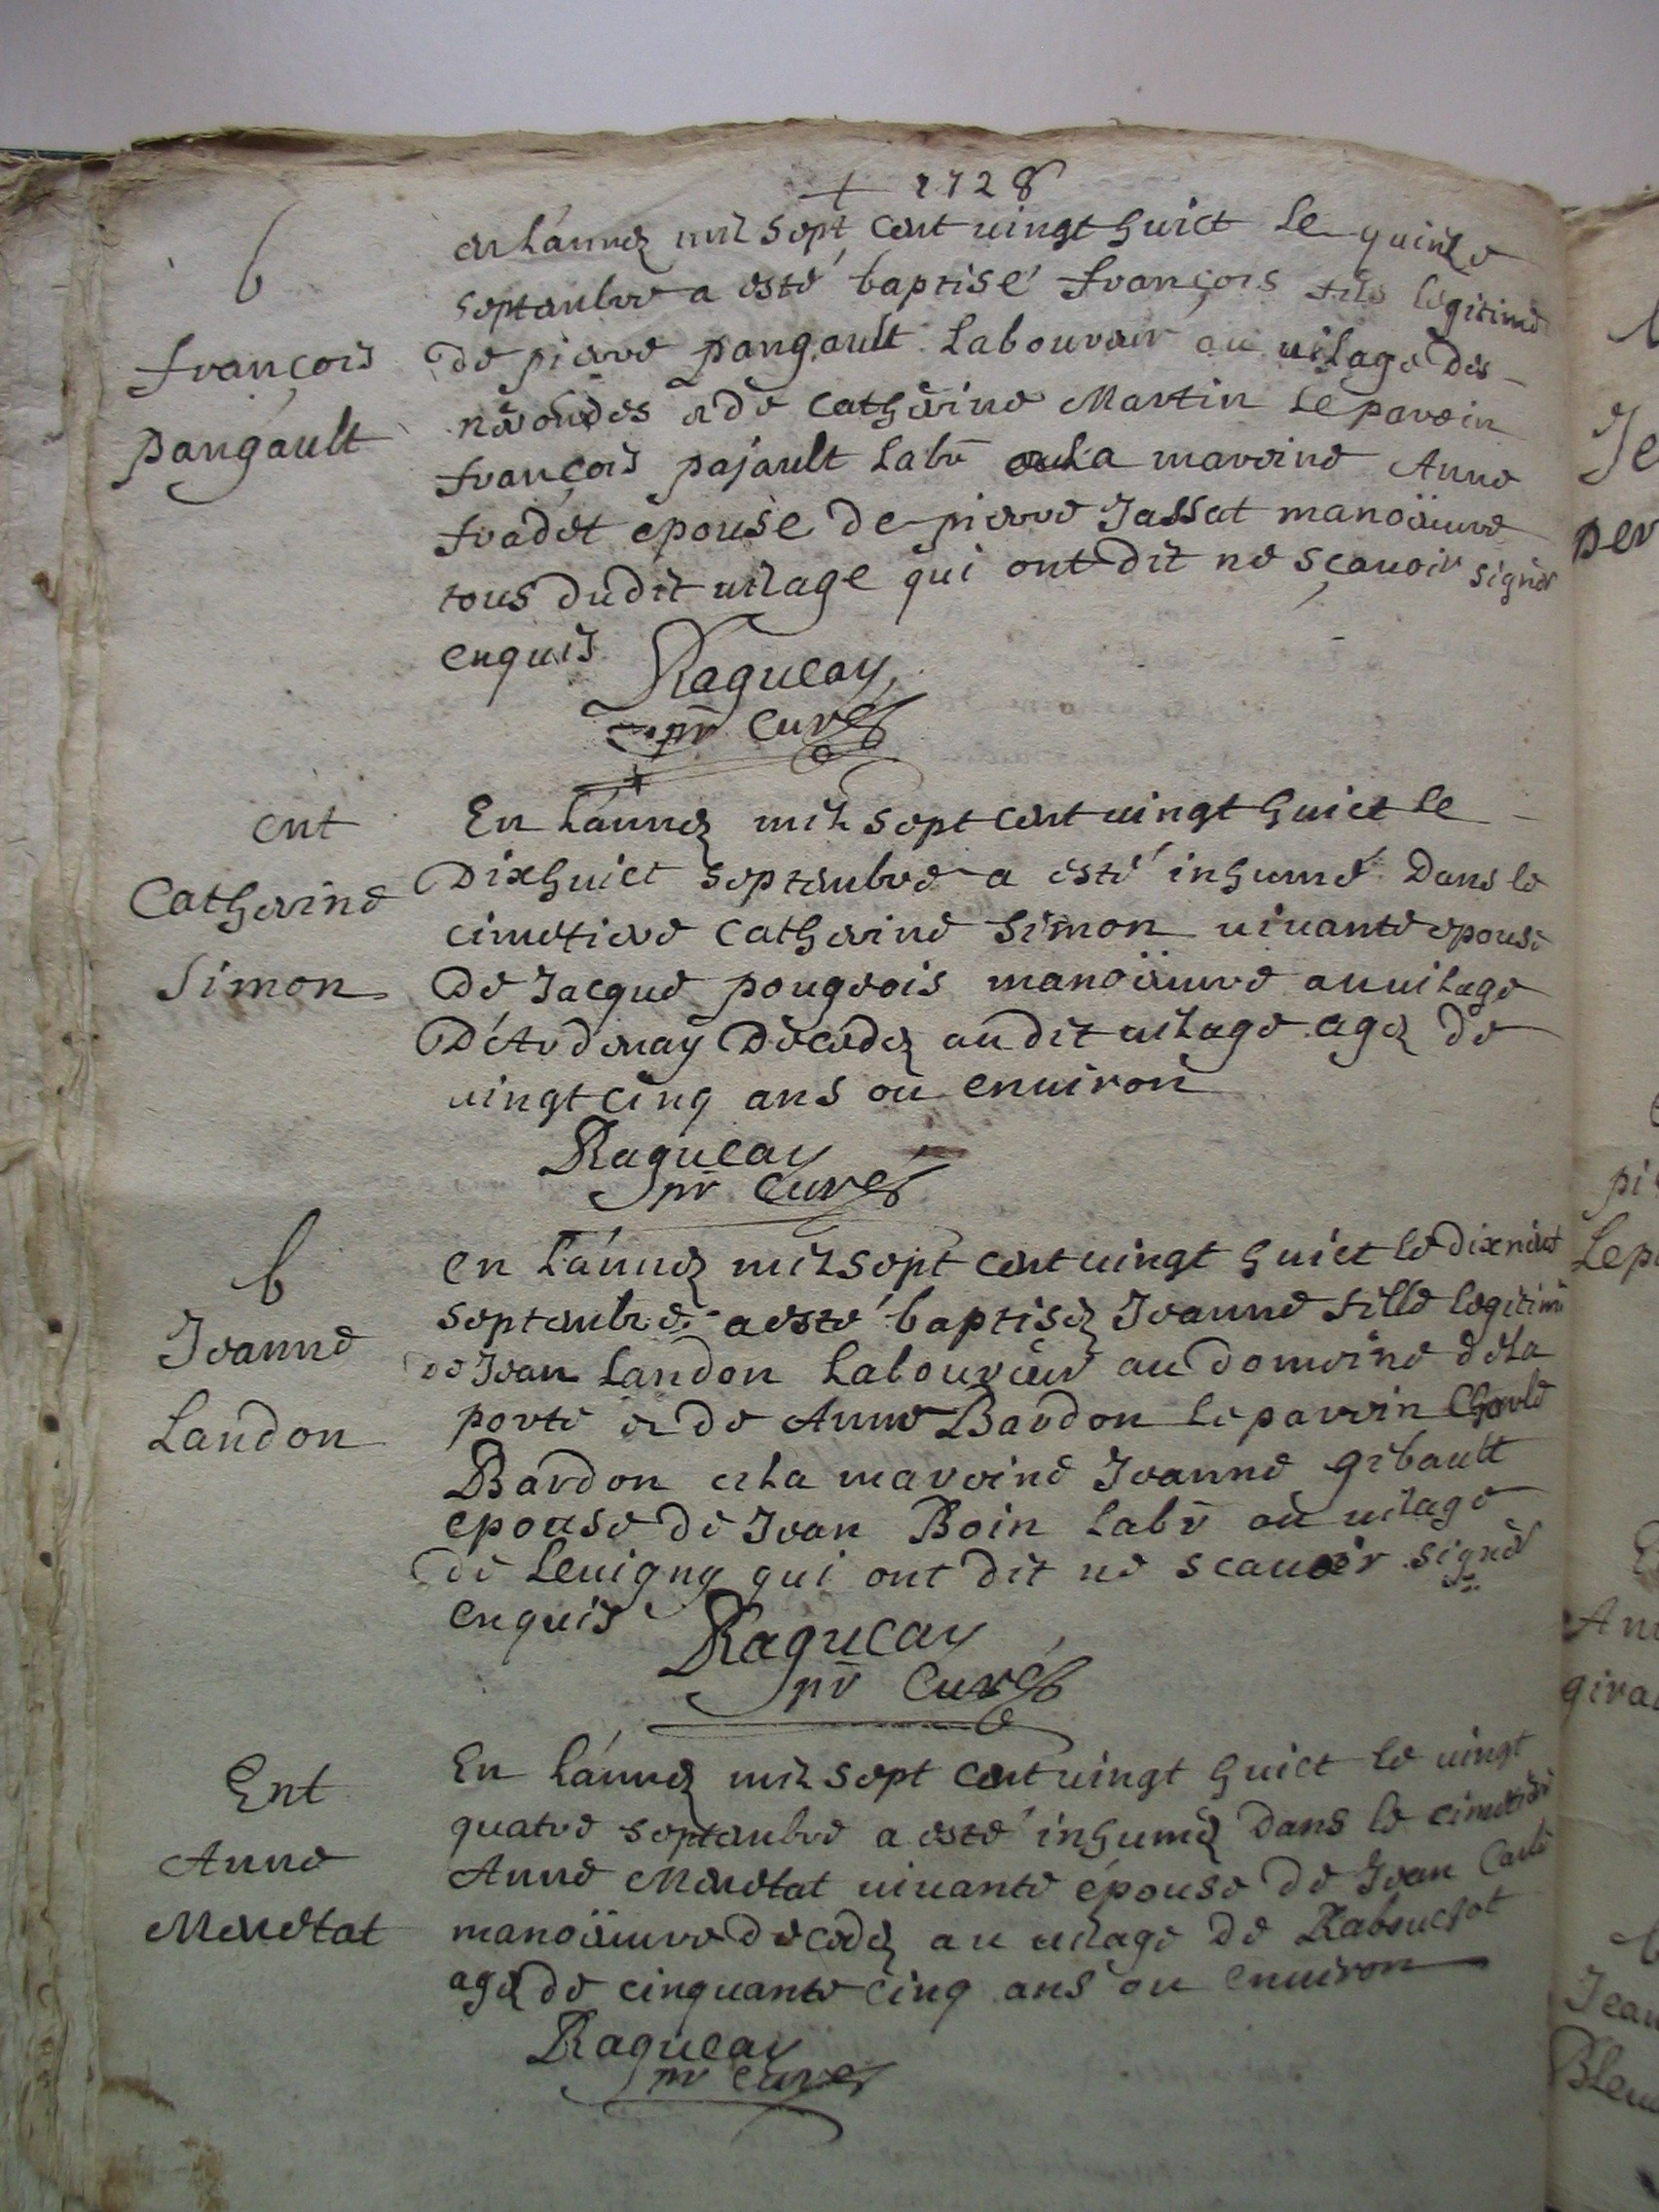 + 1728
b
françois
pangault
en lánneé mil sept cent uingt huict le quinze
septembre a esté baptisé françois fils legitime
de pierre pangault laboureur au uilage des
néraudes et de Catherine Martin le parein
françois pajault labr et la mareine Anne
fradet épouse de pierre Jassat manoëuure
tous dudit uilage qui ont dit ne sçauoir signer
enquis
Ragueau
pr Curé
ent
Catherine
Simon
En lánneé mil sept cent uingt huict le
Dixhuict septembre a esté inhumé Dans le
cimetiere Catherine Simon uiuante epouse
De Jacque pougeois manoëuure au uilage
D'Ardenay Décedeé au dit uilage ageé de
uingt cinq ans ou enuiron
Ragueau
pr Curé
b
Jeanne
Landon
en lánneé mil sept cent uingt huict le dixneuf
septembre a esté baptiseé Jeanne fille legitime
de Jean Landon Laboureur au domeine dela
porte et de Anne Bardon le parein Charle
Bardon et la mareine Jeanne gibault
epouse de Jean Boin labr au uilage
de Leuigny qui ont dit ne scauoir signer
enquis
Ragueau
pr Curé
Ent
Anne
Menetat
En lánneé mil sept cent uingt huict le uingt
quatre septembre a esté inhumeé Dans le cimetiere
Anne Menetat uiuante épouse de Jean
manoëuure decedeé au uilage de
ageé de cinquante cinq ans ou enuiron
Ragueau
pr Curé